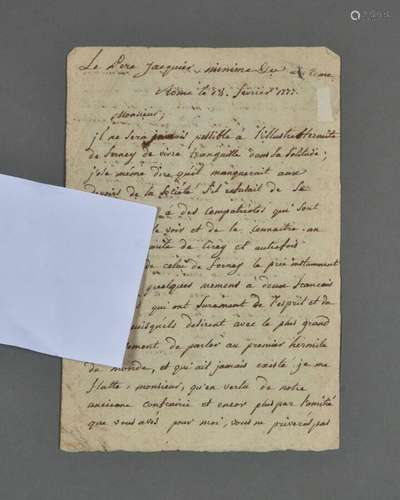 Le Pere Jacquier minime
Rome le 18. fevrier 1777.
Monsieur,
il ne sera jamais possible a l'illustre hermite
de ferney de vivre tranquille dans sa solitude;
j'ose meme dire qu'il manqueroit aux
devoirs de la societé s'il refusoit de se
à des compatriotes qui sont
le voir et de le connaitre. un
de Cirey et autrefois
de celui de ferney le prie instamment
quelques momens à deux francois
qui ont surement de l'esprit et du
desirent avec le plus grand
de parler au premier hermite
du monde, et qui ait jamais existé je me
flatte, monsieur, qu'en vertu de notre
ancienne confrairie et encor plus par l'amitié
que vous avés pour moi, vous ne priverés pas